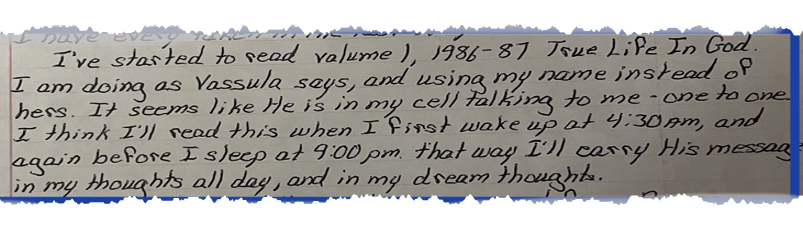 I have every
I've started to read valume 1, 1986-87 True Life In God.
I am doing as Vassula says, and using my name instead of
hers. It seems like He is in my cell talking to me - one to one.
I think I'll read this when I first wake up at 4:30 am, and
again before I sleep at 9:00 pm. that way I'll carry His messag
in my thoughts all day, and in my dream thoughts.